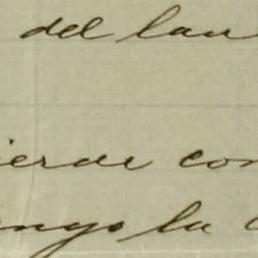 del lau
ierde con
ngo la